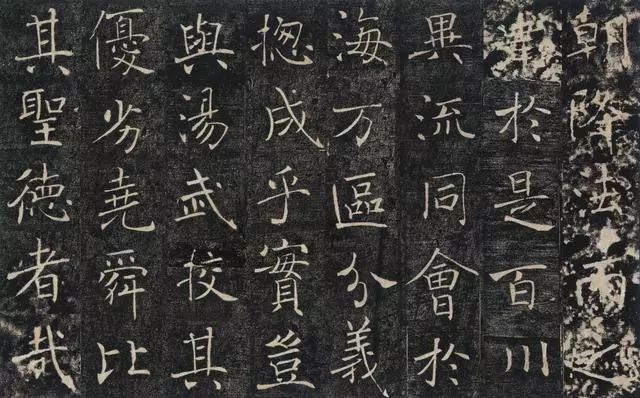 朝降法雨之
於是百川
異流同會於
海万區分義
揔成乎實豈
與湯武校其
優劣堯舜比
其聖德者哉